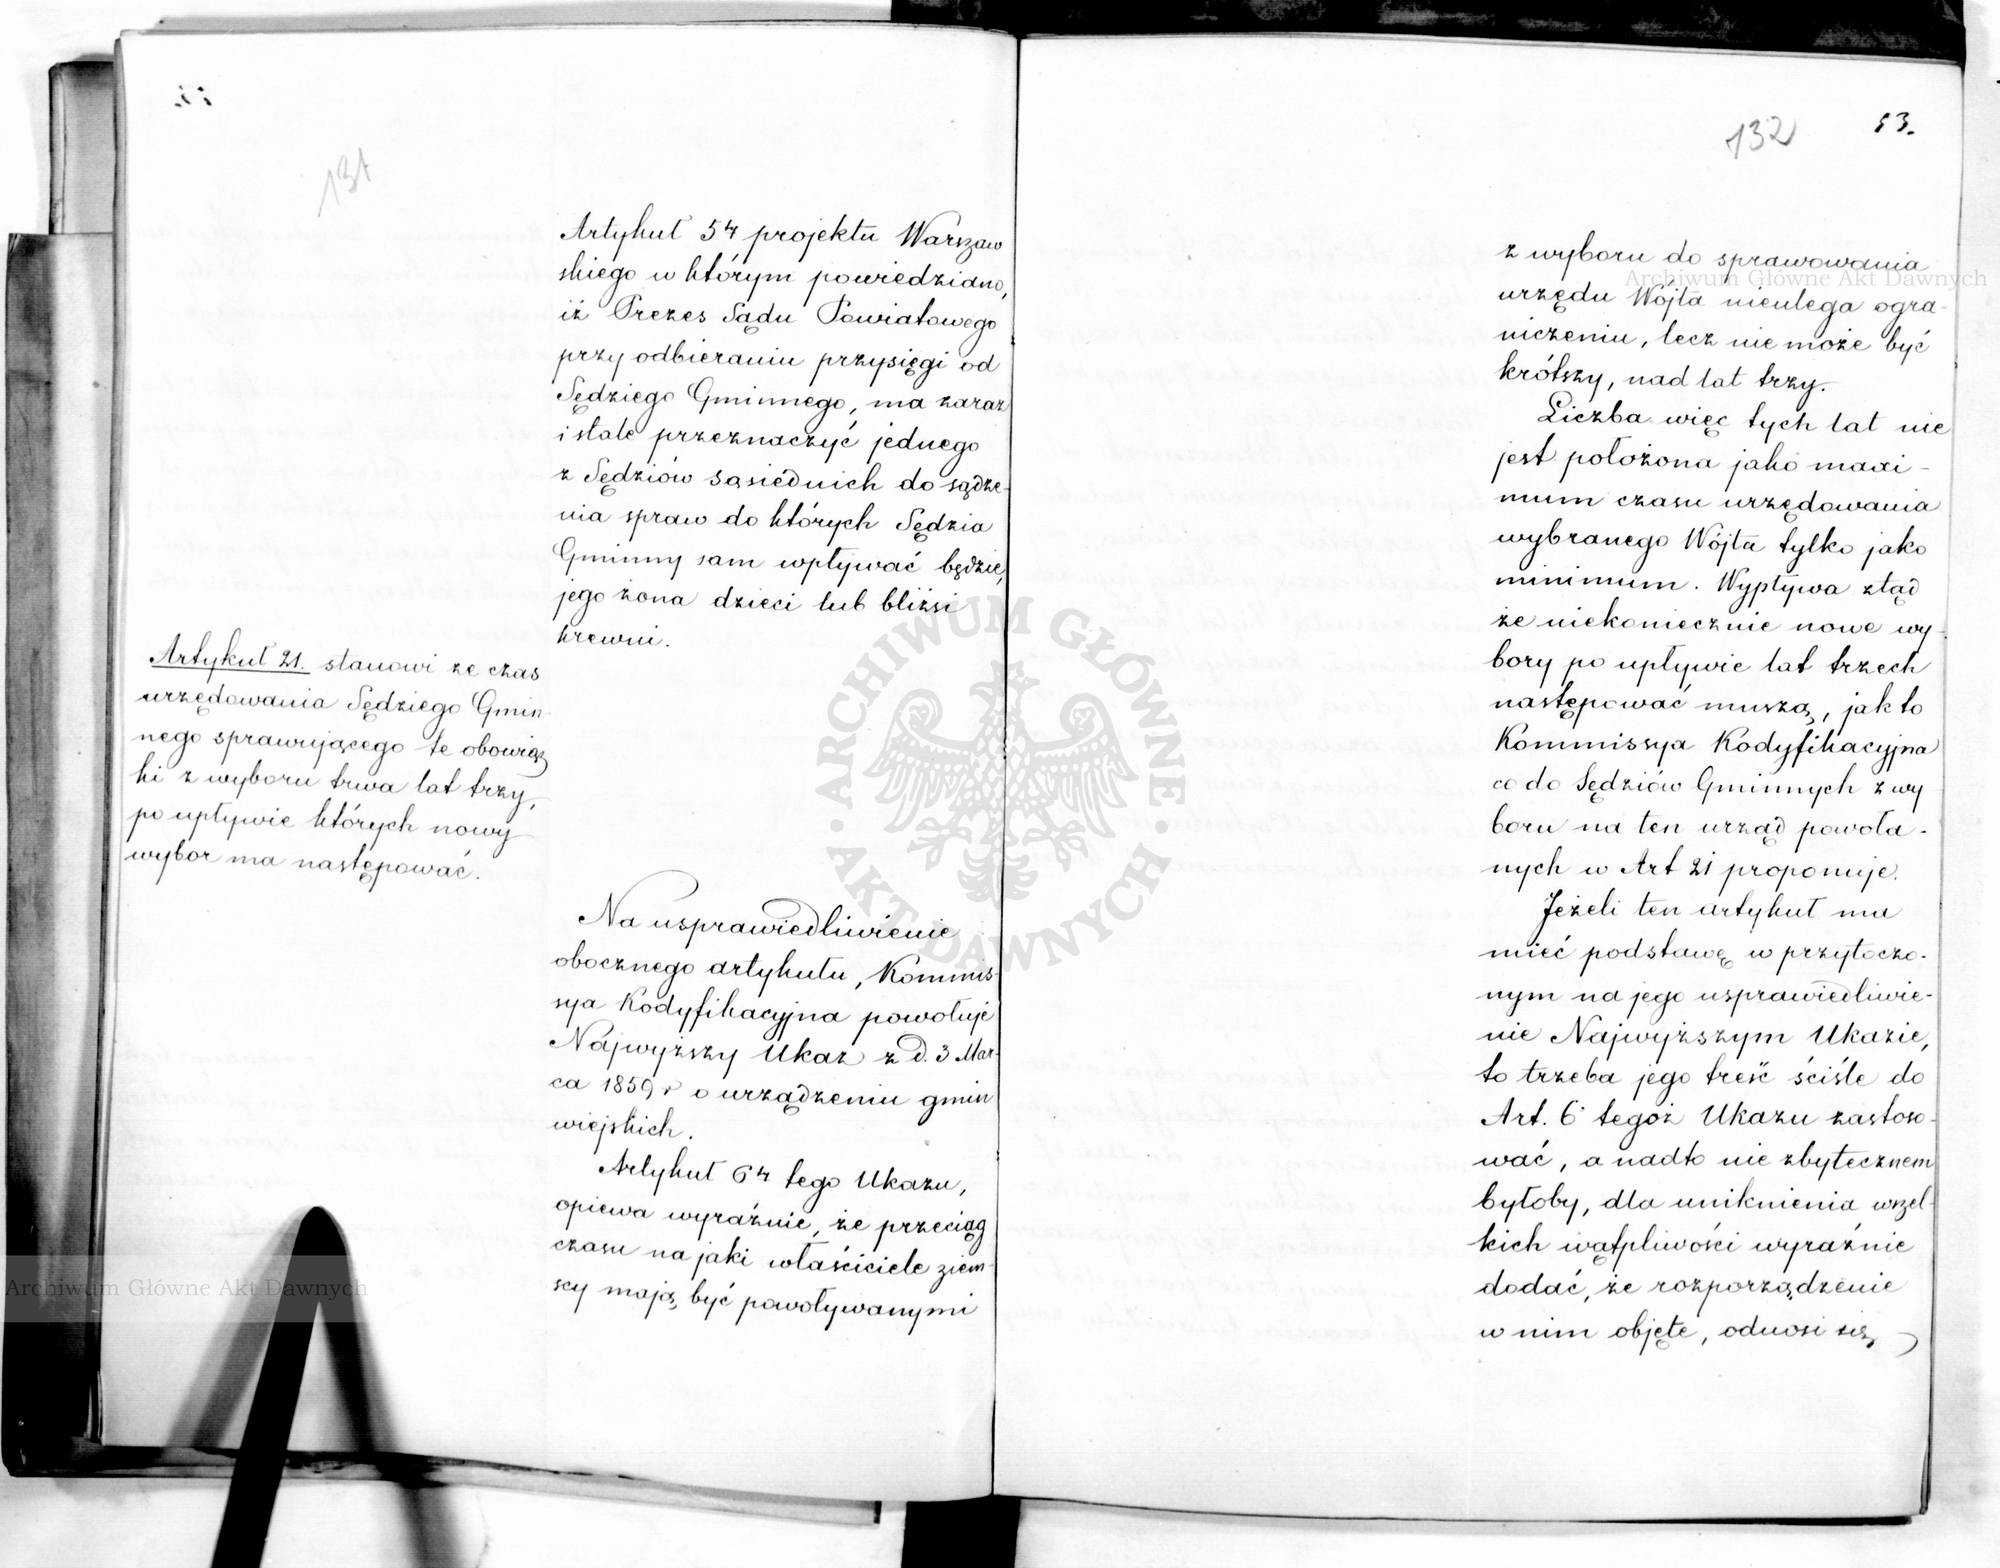 131
Artykuł 54 projektu Warszaw
skiego w którym powiedziano,
iż Prezes Sądu Powiatowego
przy odbieraniu przysięgi od
Sędziego Gminnego, ma zaraz
i stale przeznaczyć jednego
z Sędziów sąsiednich do sądze-
nia spraw do których Sędzia
Gminny sam wpływać będzie,
jego żona dzieci lub bliżsi
krewni.
Artykuł 21. stanowi że czas
urzędowania Sędziego Gmin-
nego sprawującego te obowiąz
ki z wyboru trwa lat trzy,
po upływie których nowy
wybor ma następować.
Na usprawiedliwienie
obocznego artykułu, Kommis-
sya Kodyfikacyjna powołuje
Najwyższy Ukaz z d. 3 Mar-
ca 1859 r o urządzeniu gmin
wiejskich.
Artykuł 64 tego Ukazu,
opiewa wyraźnie, że przeciąg
czasu na jaki właściciele ziem-
scy mają być powoływanymi
132
53.
z wyboru do sprawowania
urzędu Wójta nieulega ogra-
niczeniu, lecz nie może być
krótszy, nad lat trzy.
Liczba więc tych lat nie
jest położona jako maxi-
mum czasu urzędowania
wybranego Wójta tylko jako
minimum. Wypływa ztąd
że niekoniecznie nowe wy-
bory po upływie lat trzech
następować muszą, jak to
Kommissya Kodyfikacyjna
co do Sędziów Gminnych z wy
boru na ten urząd powoła-
nych w Art 21 proponuje.
Jeżeli ten artykuł ma
mieć podstawę w przytoczo-
nym na jego usprawiedliwie-
nie Najwyższym Ukazie,
to trzeba jego treść ściśle do
Art. 6 tegoż Ukazu zastoso-
wać, a nadto nie zbytecznem
byłoby, dla uniknienia wszel-
kich wątpliwości wyraźnie
dodać, że rozporządzenie
w nim objęte, odnosi się
Archiwum Główne Akt Dawnych
Archiwum Główne Akt Dawnych
ARCHIWUM GŁÓWNE · AKT DAWNYCH ·